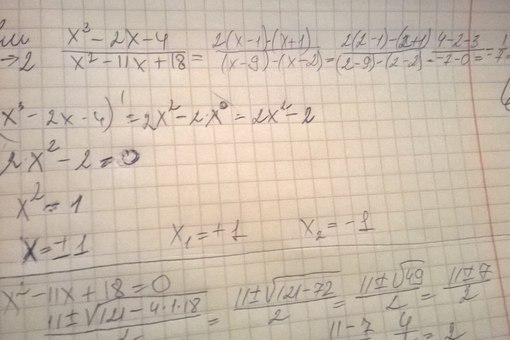 x³ - 2x - 4 / x² - 11x + 18 = 2(x-1)-(x+1) / (x-9)-(x-2) = 2(2-1)-(2+1) / (2-9)-(2-2) = 4-2-3 / -7-0 =
→2
x³ - 2x - 4)' = 2x² - 2·x⁰ = 2x² - 2
2x² - 2 = 0
x² = 1
x = ±1 x₁ = +1 x₂ = -1
x² - 11x + 18 = 0
11±√121-4·1·18 = 11±√121-72 / 2 = 11±√49 / 2 = 11±7 / 2
11-7 4 = 2